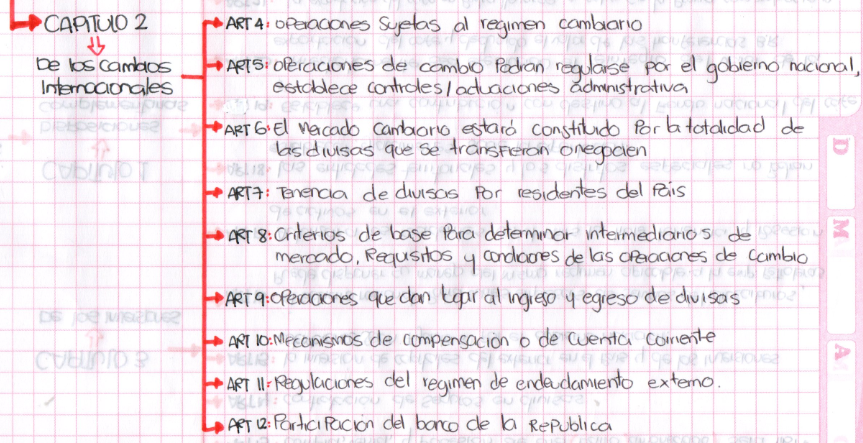 CAPITULO 2
De los cambios
Internacionales
ART 4: operaciones sujetas al regimen cambiario
ART5: operaciones de cambio Podran regularse por el gobierno nacional,
establece controles/actuaciones administrativa
ART 6: El mercado cambiario estará constituido Por la totalidad de
las divisas que se transfieran o negocien
ART7: Tenencia de divisas Por residentes del Pais
ART 8: Criterios de base Para determinar intermediarios de
mercado, Requisitos y condiciones de las operaciones de cambio
ART 9: operaciones que dan lugar al ingreso y egreso de divisas
ART 10: Mecanismos de compensación o de cuenta corriente
ART 11: Regulaciones del regimen de endeudamiento externo.
ART 12: Participación del banco de la Republica
D
M
A